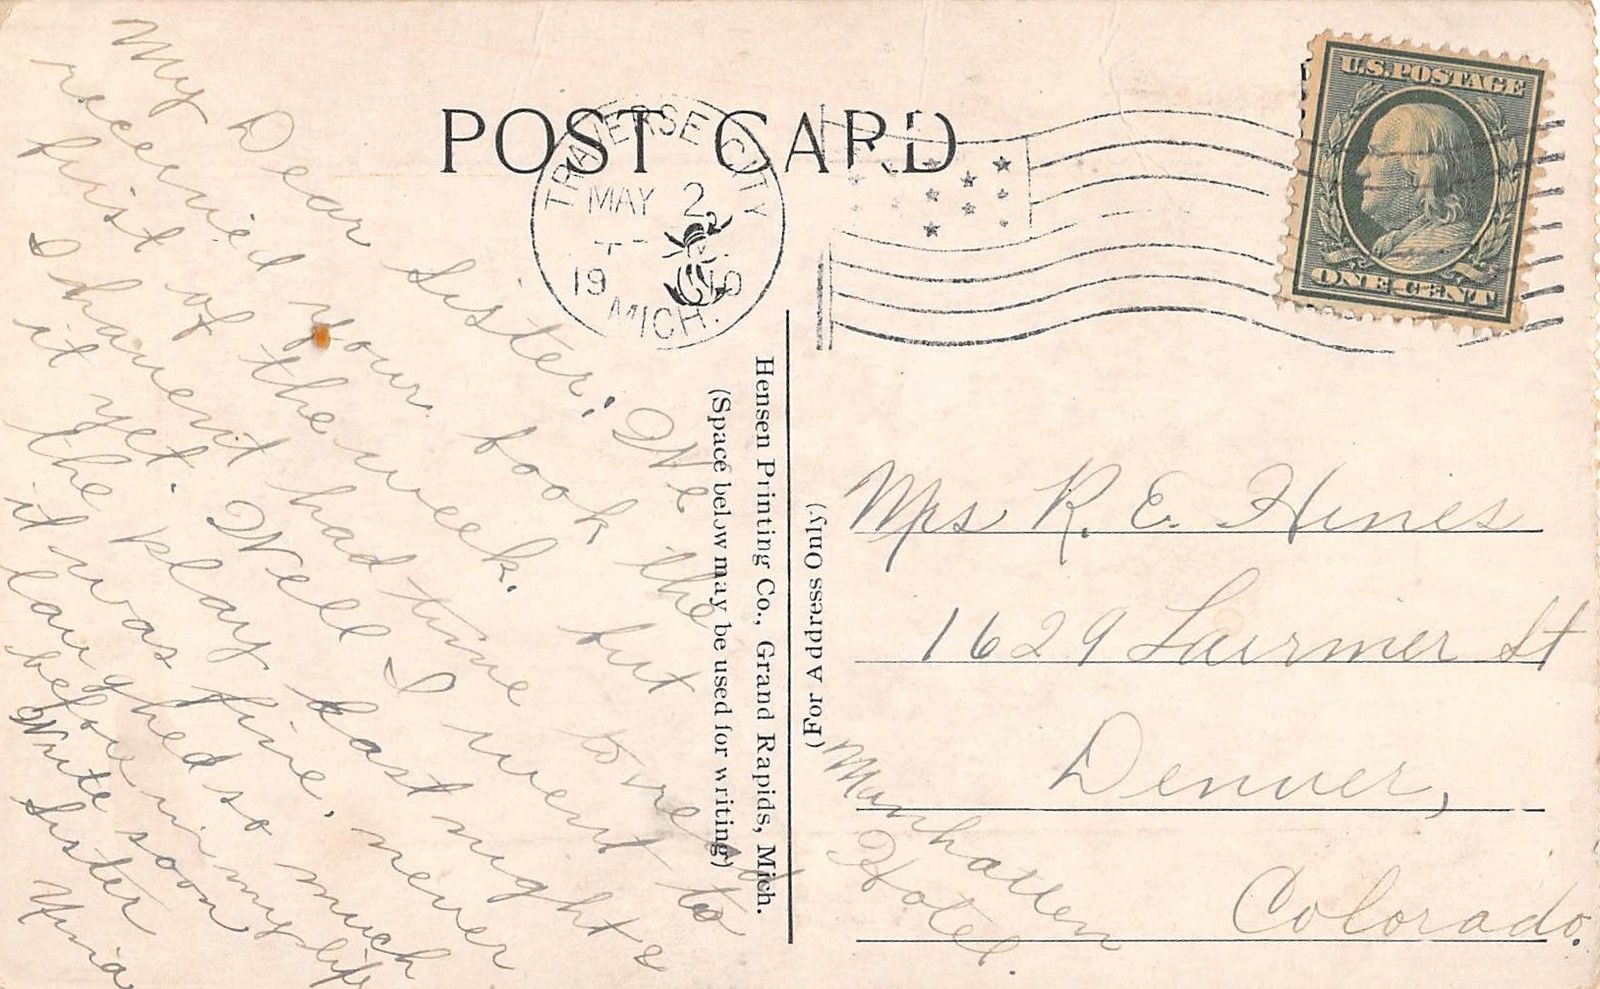 POST CARD
TRAVERSE CITY
MAY 2
19 10
MICH.
U.S. POSTAGE
ONE CENT
My Dear Sister; We
received your book the
first of the week. but
I havent had time to read
it yet. Well I went to
the play last night &
it was fine. never
laughed so much
before in my life
Write soon
Sister
Hensen Printing Co., Grand Rapids, Mich.
(Space below may be used for writing)
(For Address Only)
Mrs R. E. Hines
1629 Larimer St
Denver,
Colorado.
Manhatten
Hotel.